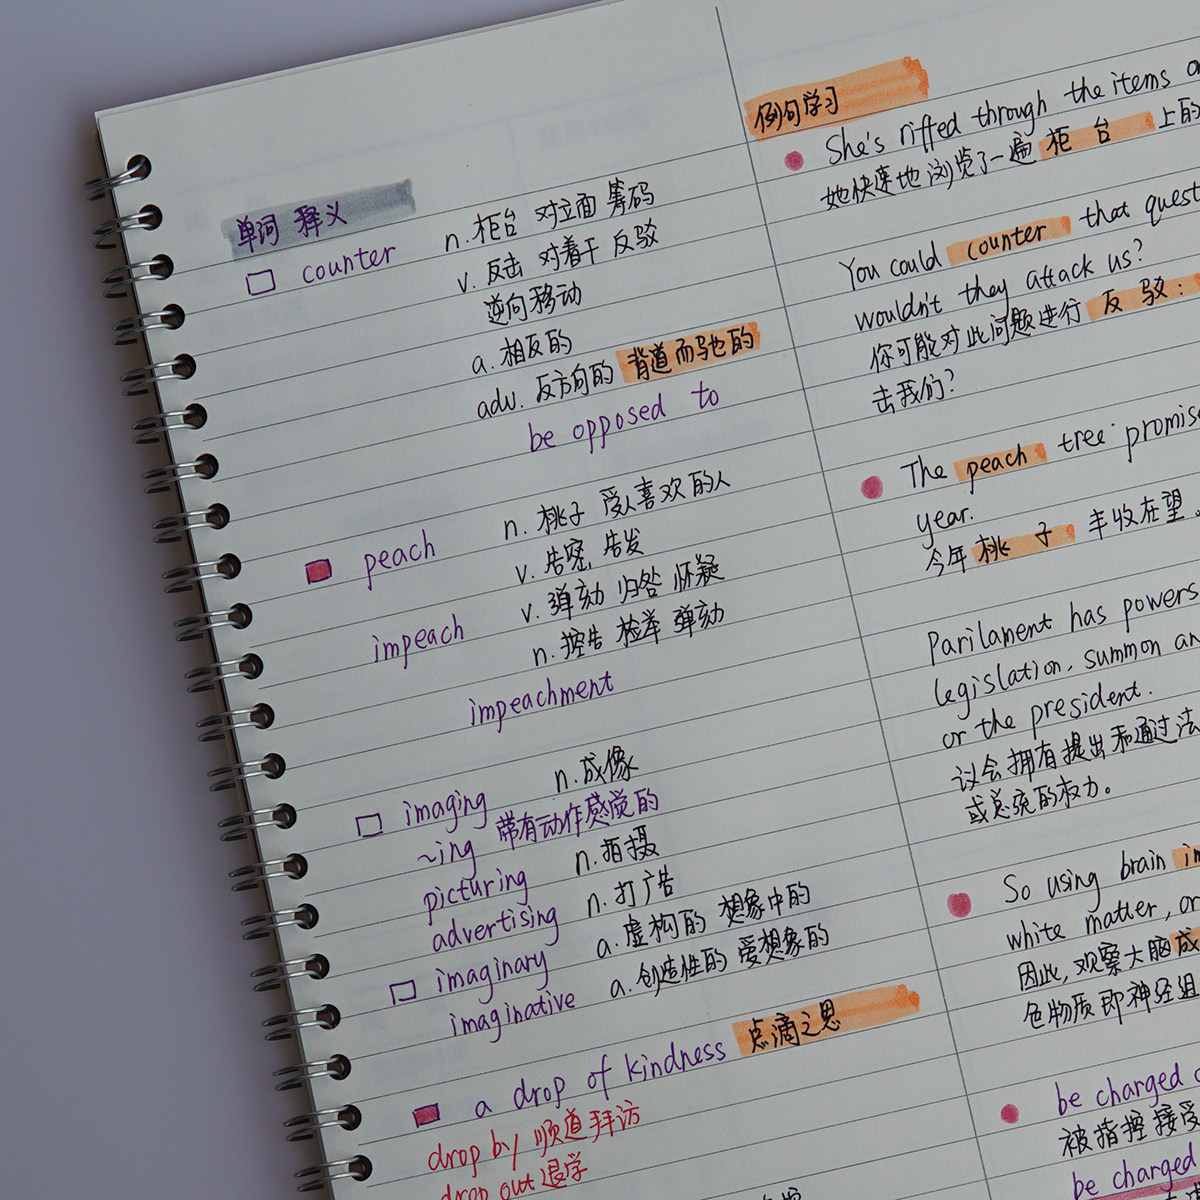 单词 释义
counter n. 柜台 对立面 筹码
v. 反击 对着干 反驳
逆向移动
a. 相反的
adv. 反方向的 背道而驰的
be opposed to
peach n. 桃子 受人喜欢的人
v. 告密 告发
impeach v. 弹劾 归咎 怀疑
n. 控告 检举 弹劾
impeachment
imaging n. 成像
~ing 带有动作感觉的
picturing n. 拍摄
advertising n. 打广告
imaginary a. 虚构的 想象中的
imaginative a. 创造性的 爱想象的
a drop of kindness 点滴之恩
drop by 顺道拜访
drop out 退学
例句学习
She's riffed through the items
她快速地浏览了一遍 柜台 上的
You could counter that quest
wouldn't they attack us?
你可能对此问题进行 反驳:
击我们?
The peach tree promise
year.
今年桃子 丰收在望。
Parilament has powers
legislation, summon an
or the president.
议会拥有提出和通过法
或总统的权力。
So using brain im
white matter, or
因此,观察大脑成
色物质即神经组
be charged
被指控接受
be charged